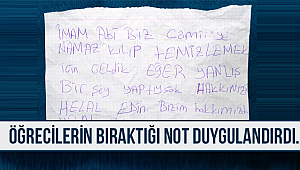 İMAM Abi BİZ CAMİİ'yi
NAMAZ KILIP TEMİZLEMEK
için GELDİK EĞER YANLIŞ
Bir şey YAPtıysak HAKKINIZI
HELAL Edin Bizim hakkımız
ÖĞRECİLERİN BIRAKTIĞI NOT DUYGULANDIRDI.